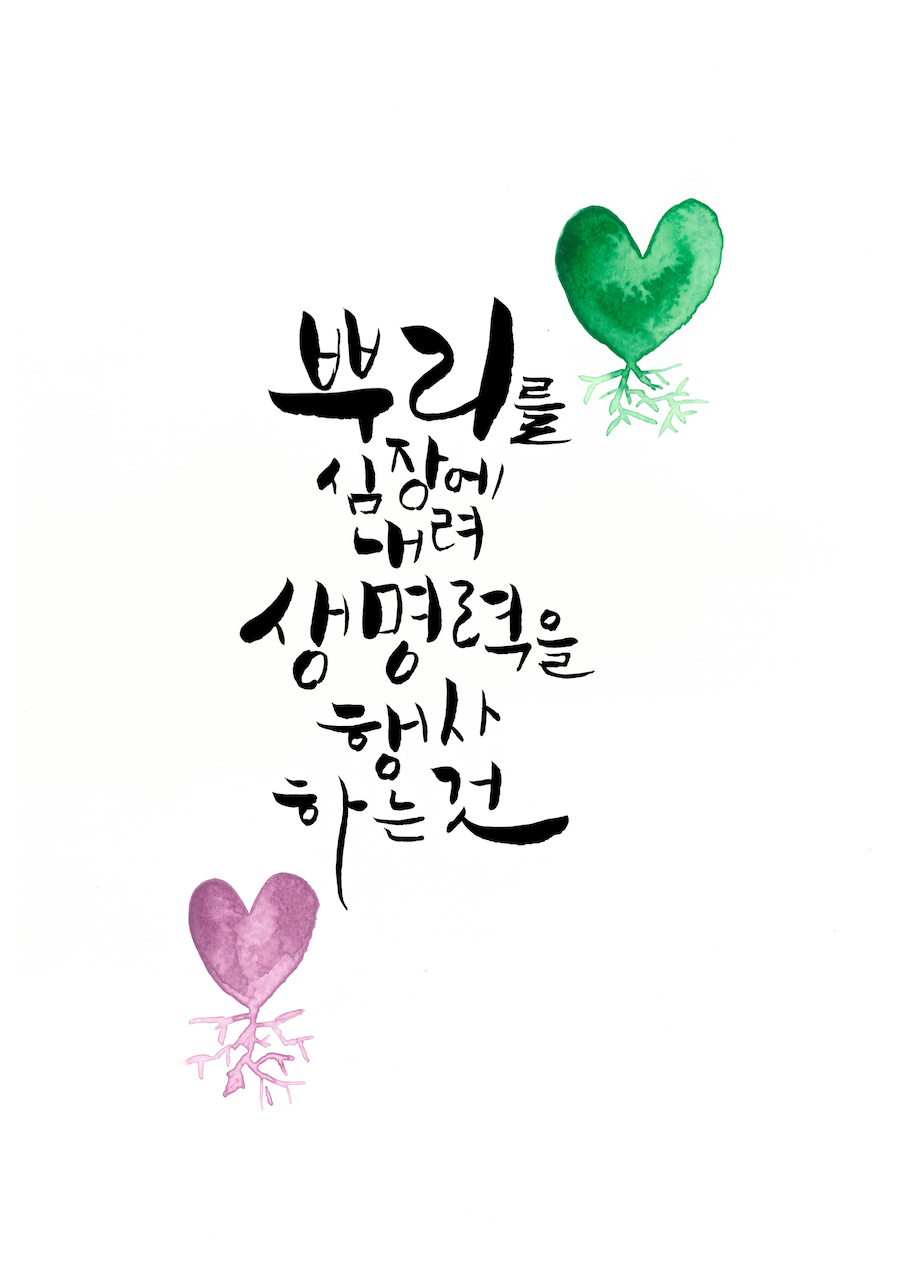 뿌리를
심장에
내려
생명력을
행사
하는것